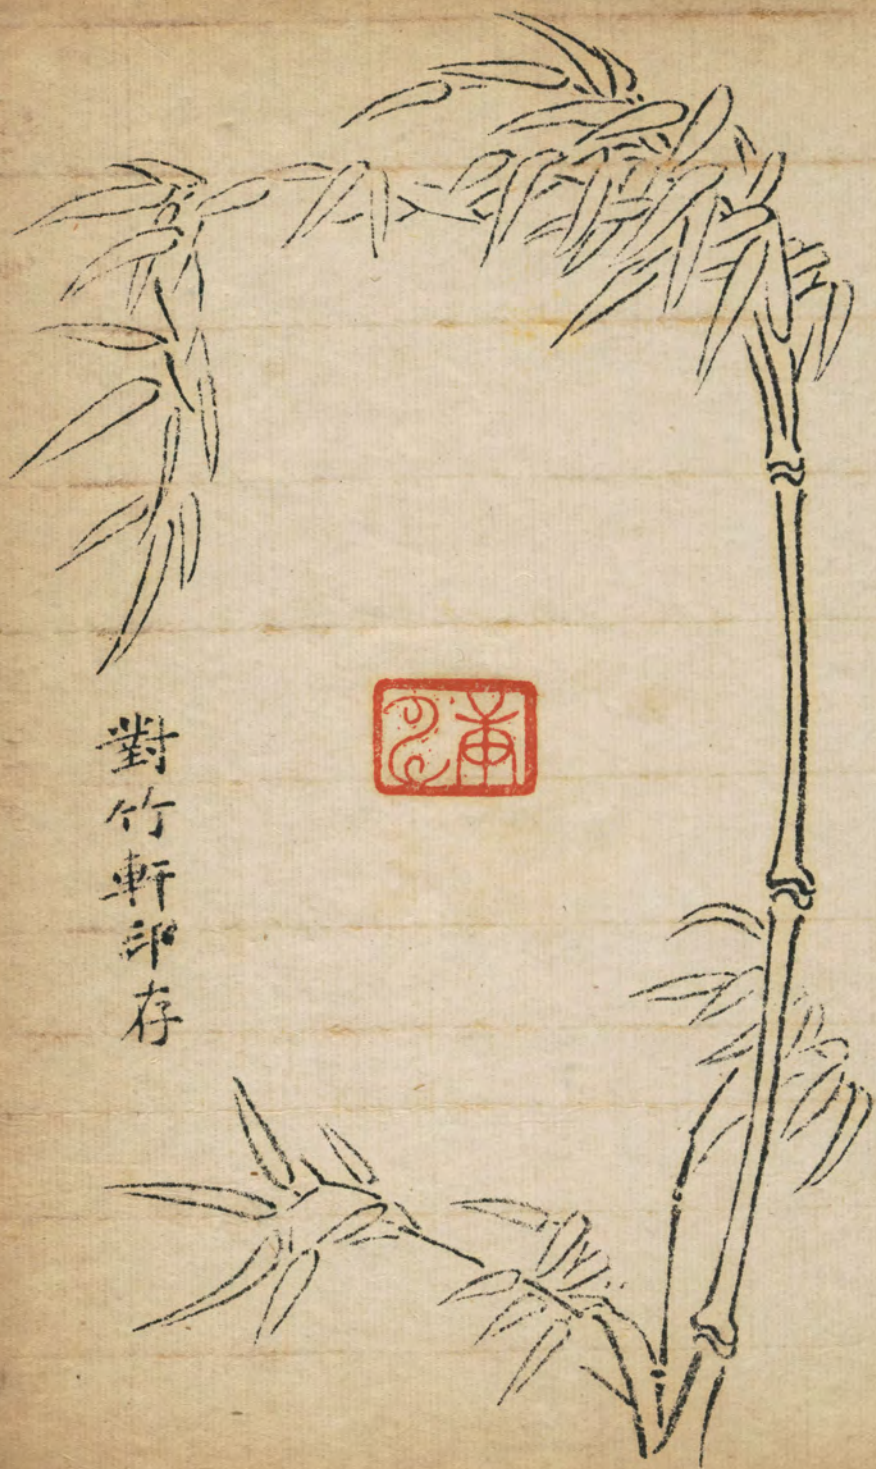 對竹軒印存